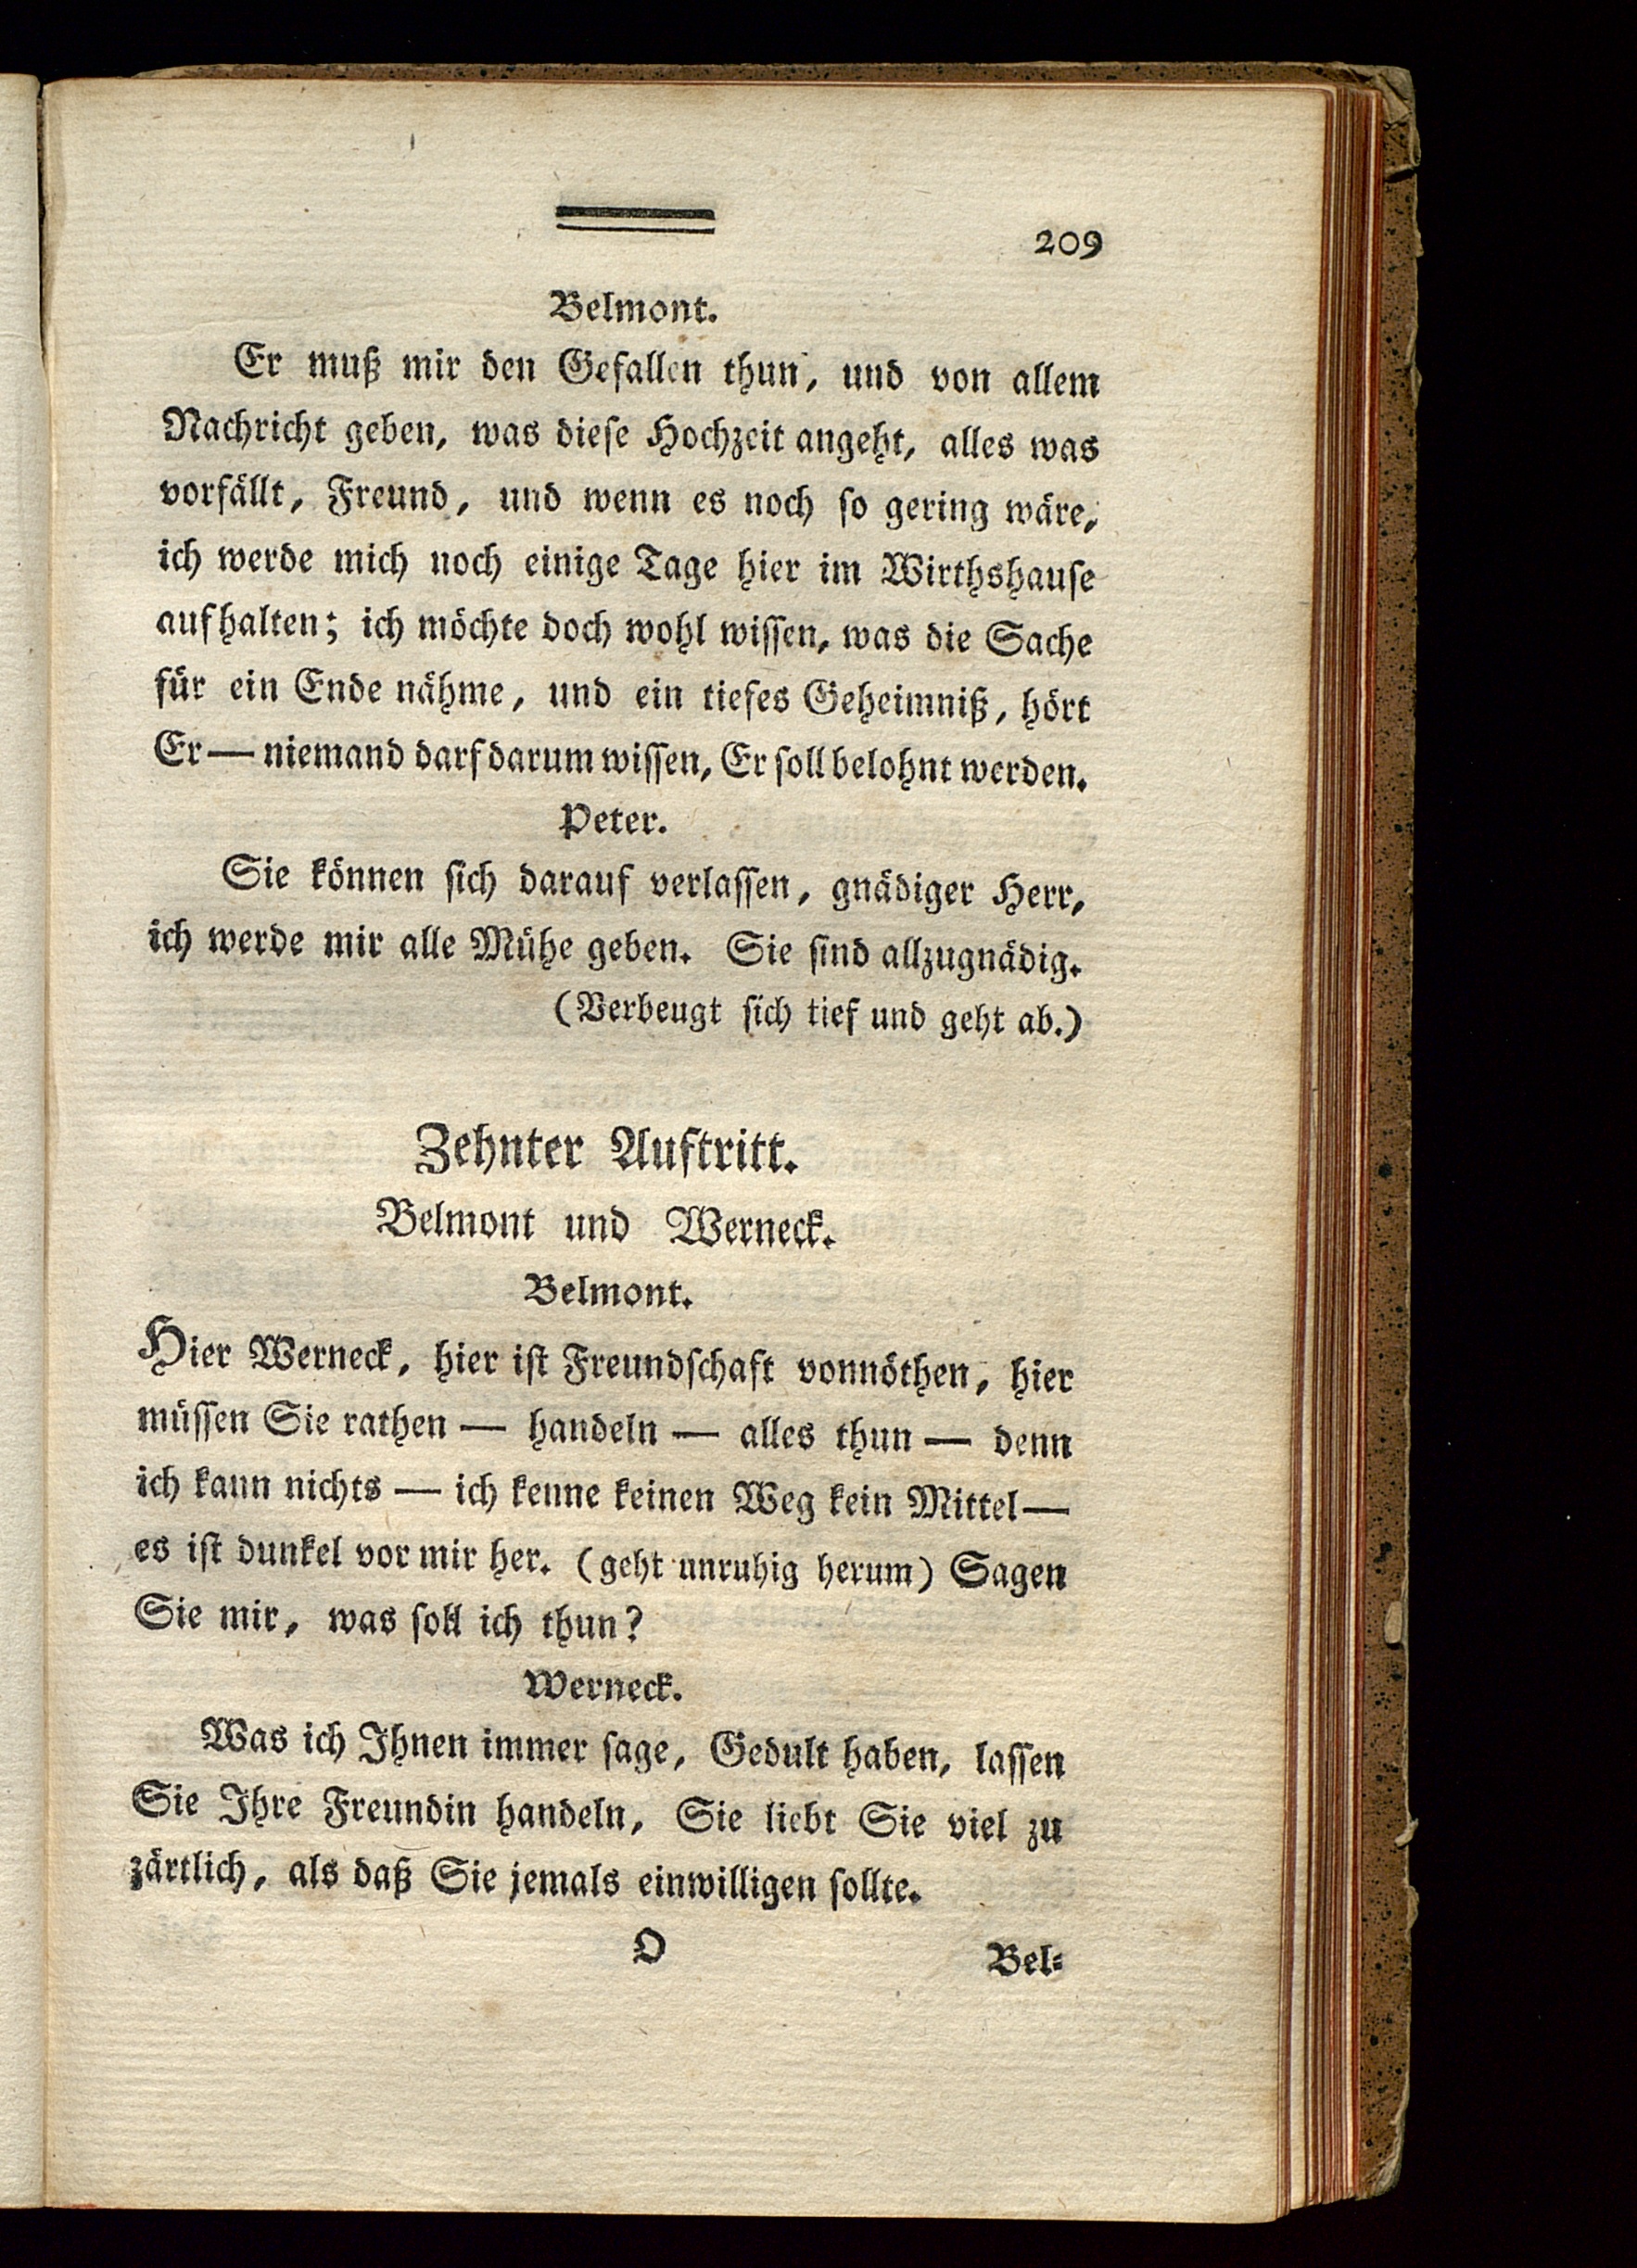 209
Belmont.
Er muß mir den Gefallen thun, und von allem
Nachricht geben, was dieſe Hochzeit angeht, alles was
vorfällt, Freund, und wenn es noch ſo gering wäre,
ich werde mich noch einige Tage hier im Wirthshauſe
aufhalten; ich möchte doch wohl wiſſen, was die Sache
für ein Ende nähme, und ein tiefes Geheimniß, hört
Er — niemand darf darum wiſſen, Er ſoll belohnt werden.
Peter.
Sie können ſich darauf verlaſſen, gnädiger Herr,
ich werde mir alle Mühe geben. Sie ſind allzugnädig.
(Verbeugt ſich tief und geht ab.)
Zehnter Auftritt.
Belmont und Werneck.
Belmont.
Hier Werneck, hier iſt Freundſchaft vonnöthen, hier
müſſen Sie rathen — handeln — alles thun — denn
ich kann nichts — ich kenne keinen Weg kein Mittel —
es iſt dunkel vor mir her. (geht unruhig herum) Sagen
Sie mir, was ſoll ich thun?
Werneck.
Was ich Ihnen immer ſage, Gedult haben, laſſen
Sie Ihre Freundin handeln, Sie liebt Sie viel zu
zärtlich, als daß Sie jemals einwilligen ſollte.
O Bel⸗